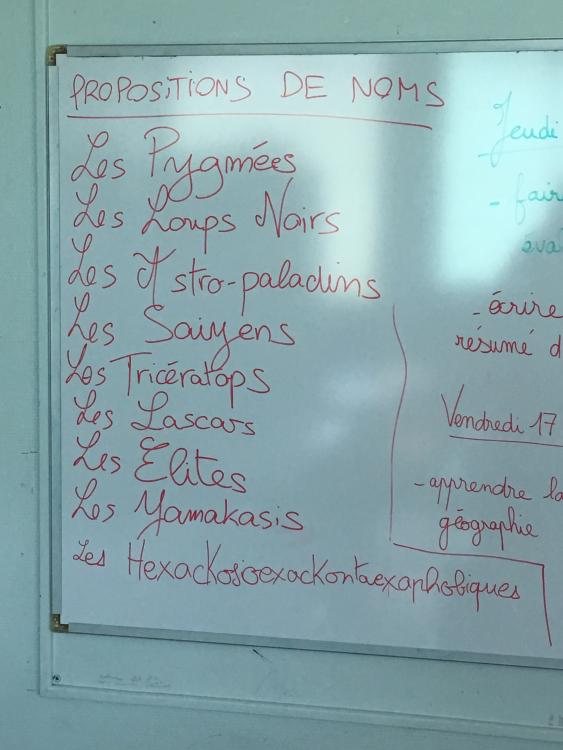 PROPOSITIONS DE NOMS
Les Pygmées
Les Loups Noirs
Les Astro-paladins
Les Saiyens
Les Tricératops
Les Lascars
Les Élites
Les Yamakasis
Les Hexackosioexackontaexaphobiques
Jeudi
- fair
éva
- écrire
résumé d
Vendredi 17
- apprendre la
géographie